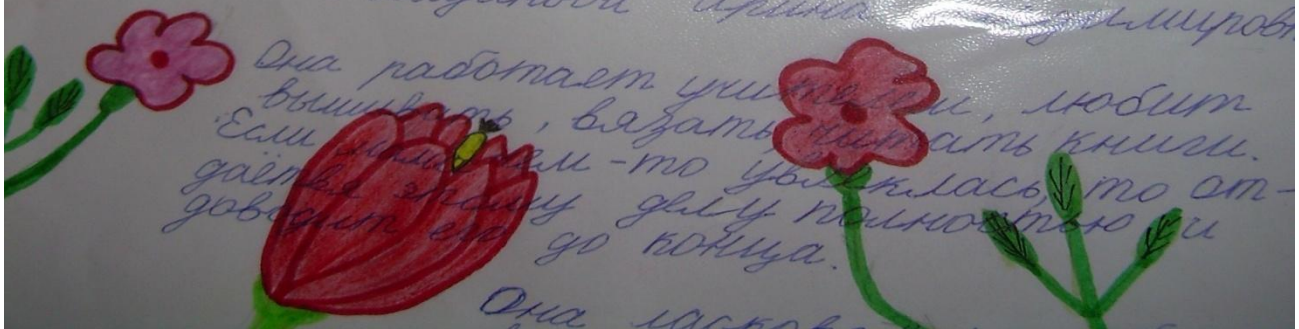 Ирина
Она работает учителем, любит
вышивать, вязать, читать книги.
Если мама чем-то увлеклась, то от-
даётся этому делу полностью и
доводит его до конца.
Она ласкова